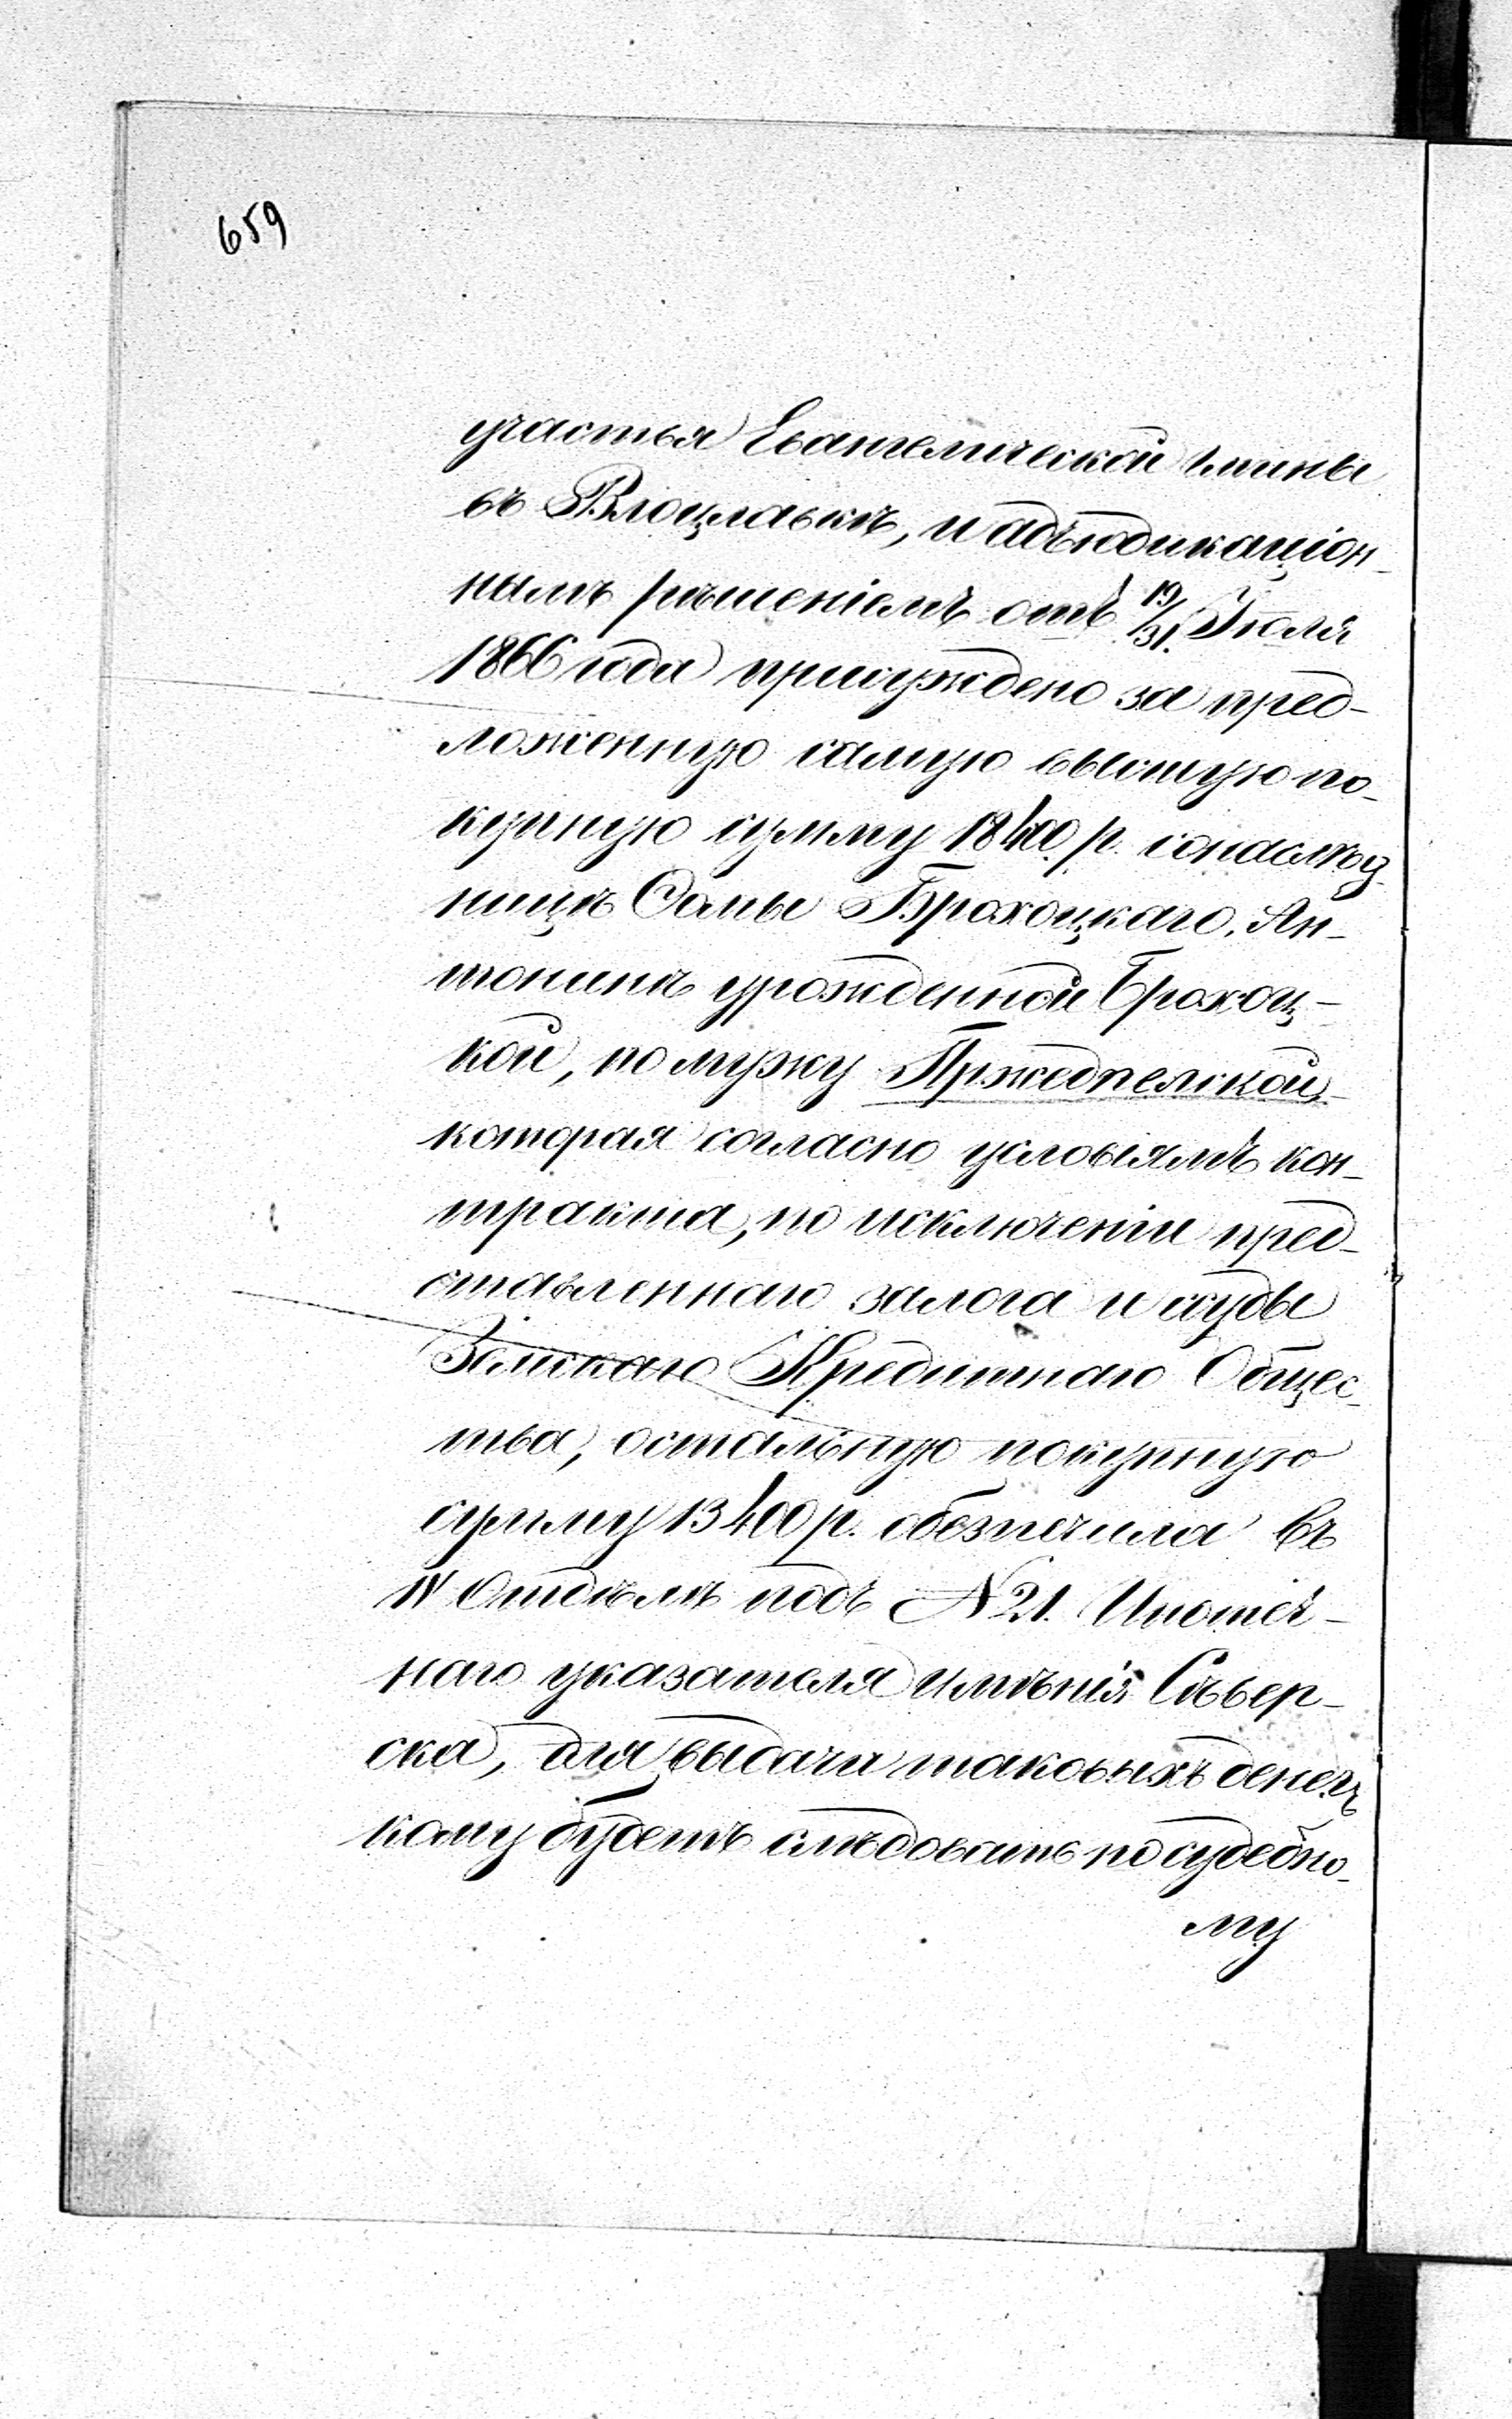 659
участья Евангелической гмины
въ Влоцлавкѣ, и адъюдикаціон-
нымъ рѣшеніемъ отъ 19/31. Іюля
1866 года присуждено за пред-
ложенную самую высшую по-
купную сумму 18400 р. сонаслѣд-
ницѣ Фомы Брохоцкаго, Ан-
тонинѣ урожденной Брохоц-
кой, по мужу Пржедпелской,
которая согласно условіямъ кон-
тракта, по исключеніи пред-
ставленнаго залога и ссуды
Земскаго Кредитнаго Общес-
тва, остальную покупную
сумму 13400 р. обезпечила въ
IV Отдѣлѣ подъ № 21. Ипотеч-
наго указателя имѣнія Сѣвер-
ска, для выдачи таковыхъ денегъ
кому будетъ слѣдовать по судебно-
му